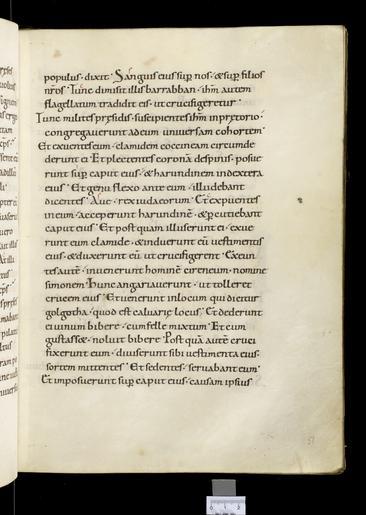 populus · dixit · Sanguis eius sup nos · & sup filios
nr̄os · Tunc dimisit illis barrabban · ihm̄ autem
flagellatum tradidit eis · ut crucifigeretur ·
Tunc milites presidis · suscipientes ihm̄ in pretorio ·
congregauerunt ad eum uniuersam cohortem ·
Et exuentes eum · clamidem coccineam circumde
derunt ei · Et plectentes coronā de spinis · posue
runt sup caput eius · & harundinem in dextera
eius · Et genu flexo ante eum · illudebant
dicentes · Aue · rex iudaeorum · Et expuentes
in eum · acceperunt harundinē · & percutiebant
caput eius · Et postquam illuserunt ei · exue
runt eum clamide · & induerunt eū uestimentis
eius · & duxerunt eū · ut crucifigerent · Exeun
tes autē · inuenerunt hominē cireneum · nomine
simonem · hunc angariauerunt · ut tolleret
crucem eius · Et uenerunt in locum qui dicitur
golgotha · quod est caluarię locus · Et dederunt
ei uinum bibere · cum felle mixtum · Et cum
gustass& · noluit bibere · Post quā autē cruci
fixerunt eum · diuiserunt sibi uestimenta eius ·
sortem mittentes · Et sedentes · seruabant eum ·
Et imposuerunt sup caput eius · causam ipsius